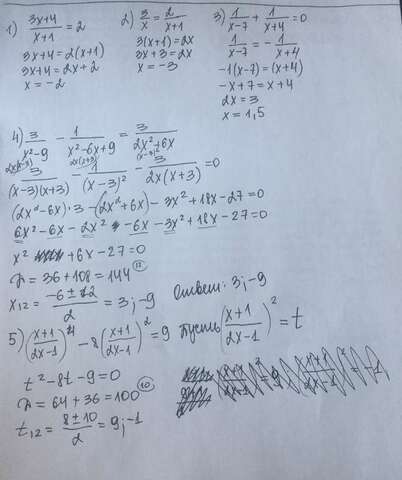 1) (3x+4)/(x+1) = 2
3x+4 = 2(x+1)
3x+4 = 2x+2
x = -2
2) 3/x = 2/(x+1)
3(x+1) = 2x
3x+3 = 2x
x = -3
3) 1/(x-7) + 1/(x+4) = 0
1/(x-7) = - 1/(x+4)
-1(x-7) = (x+4)
-x+7 = x+4
2x = 3
x = 1,5
4) 3/(x²-9) - 1/(x²-6x+9) = 3/(2x²+6x)
3/((x-3)(x+3)) - 1/(x-3)² - 3/(2x(x+3)) = 0
(2x²-6x)·3 - (2x²+6x) - 3x²+18x-27=0
6x²-6x-2x²-6x-3x²+18x-27=0
x² +6x-27=0
D = 36+108=144
x12 = (-6±12)/2 = 3; -9 Ответ: 3; -9
5) ((x+1)/(2x-1))⁴ - 8((x+1)/(2x-1))² = 9 Пусть ((x+1)/(2x-1))² = t
t²-8t-9=0
D = 64+36=100
t12 = (8±10)/2 = 9; -1